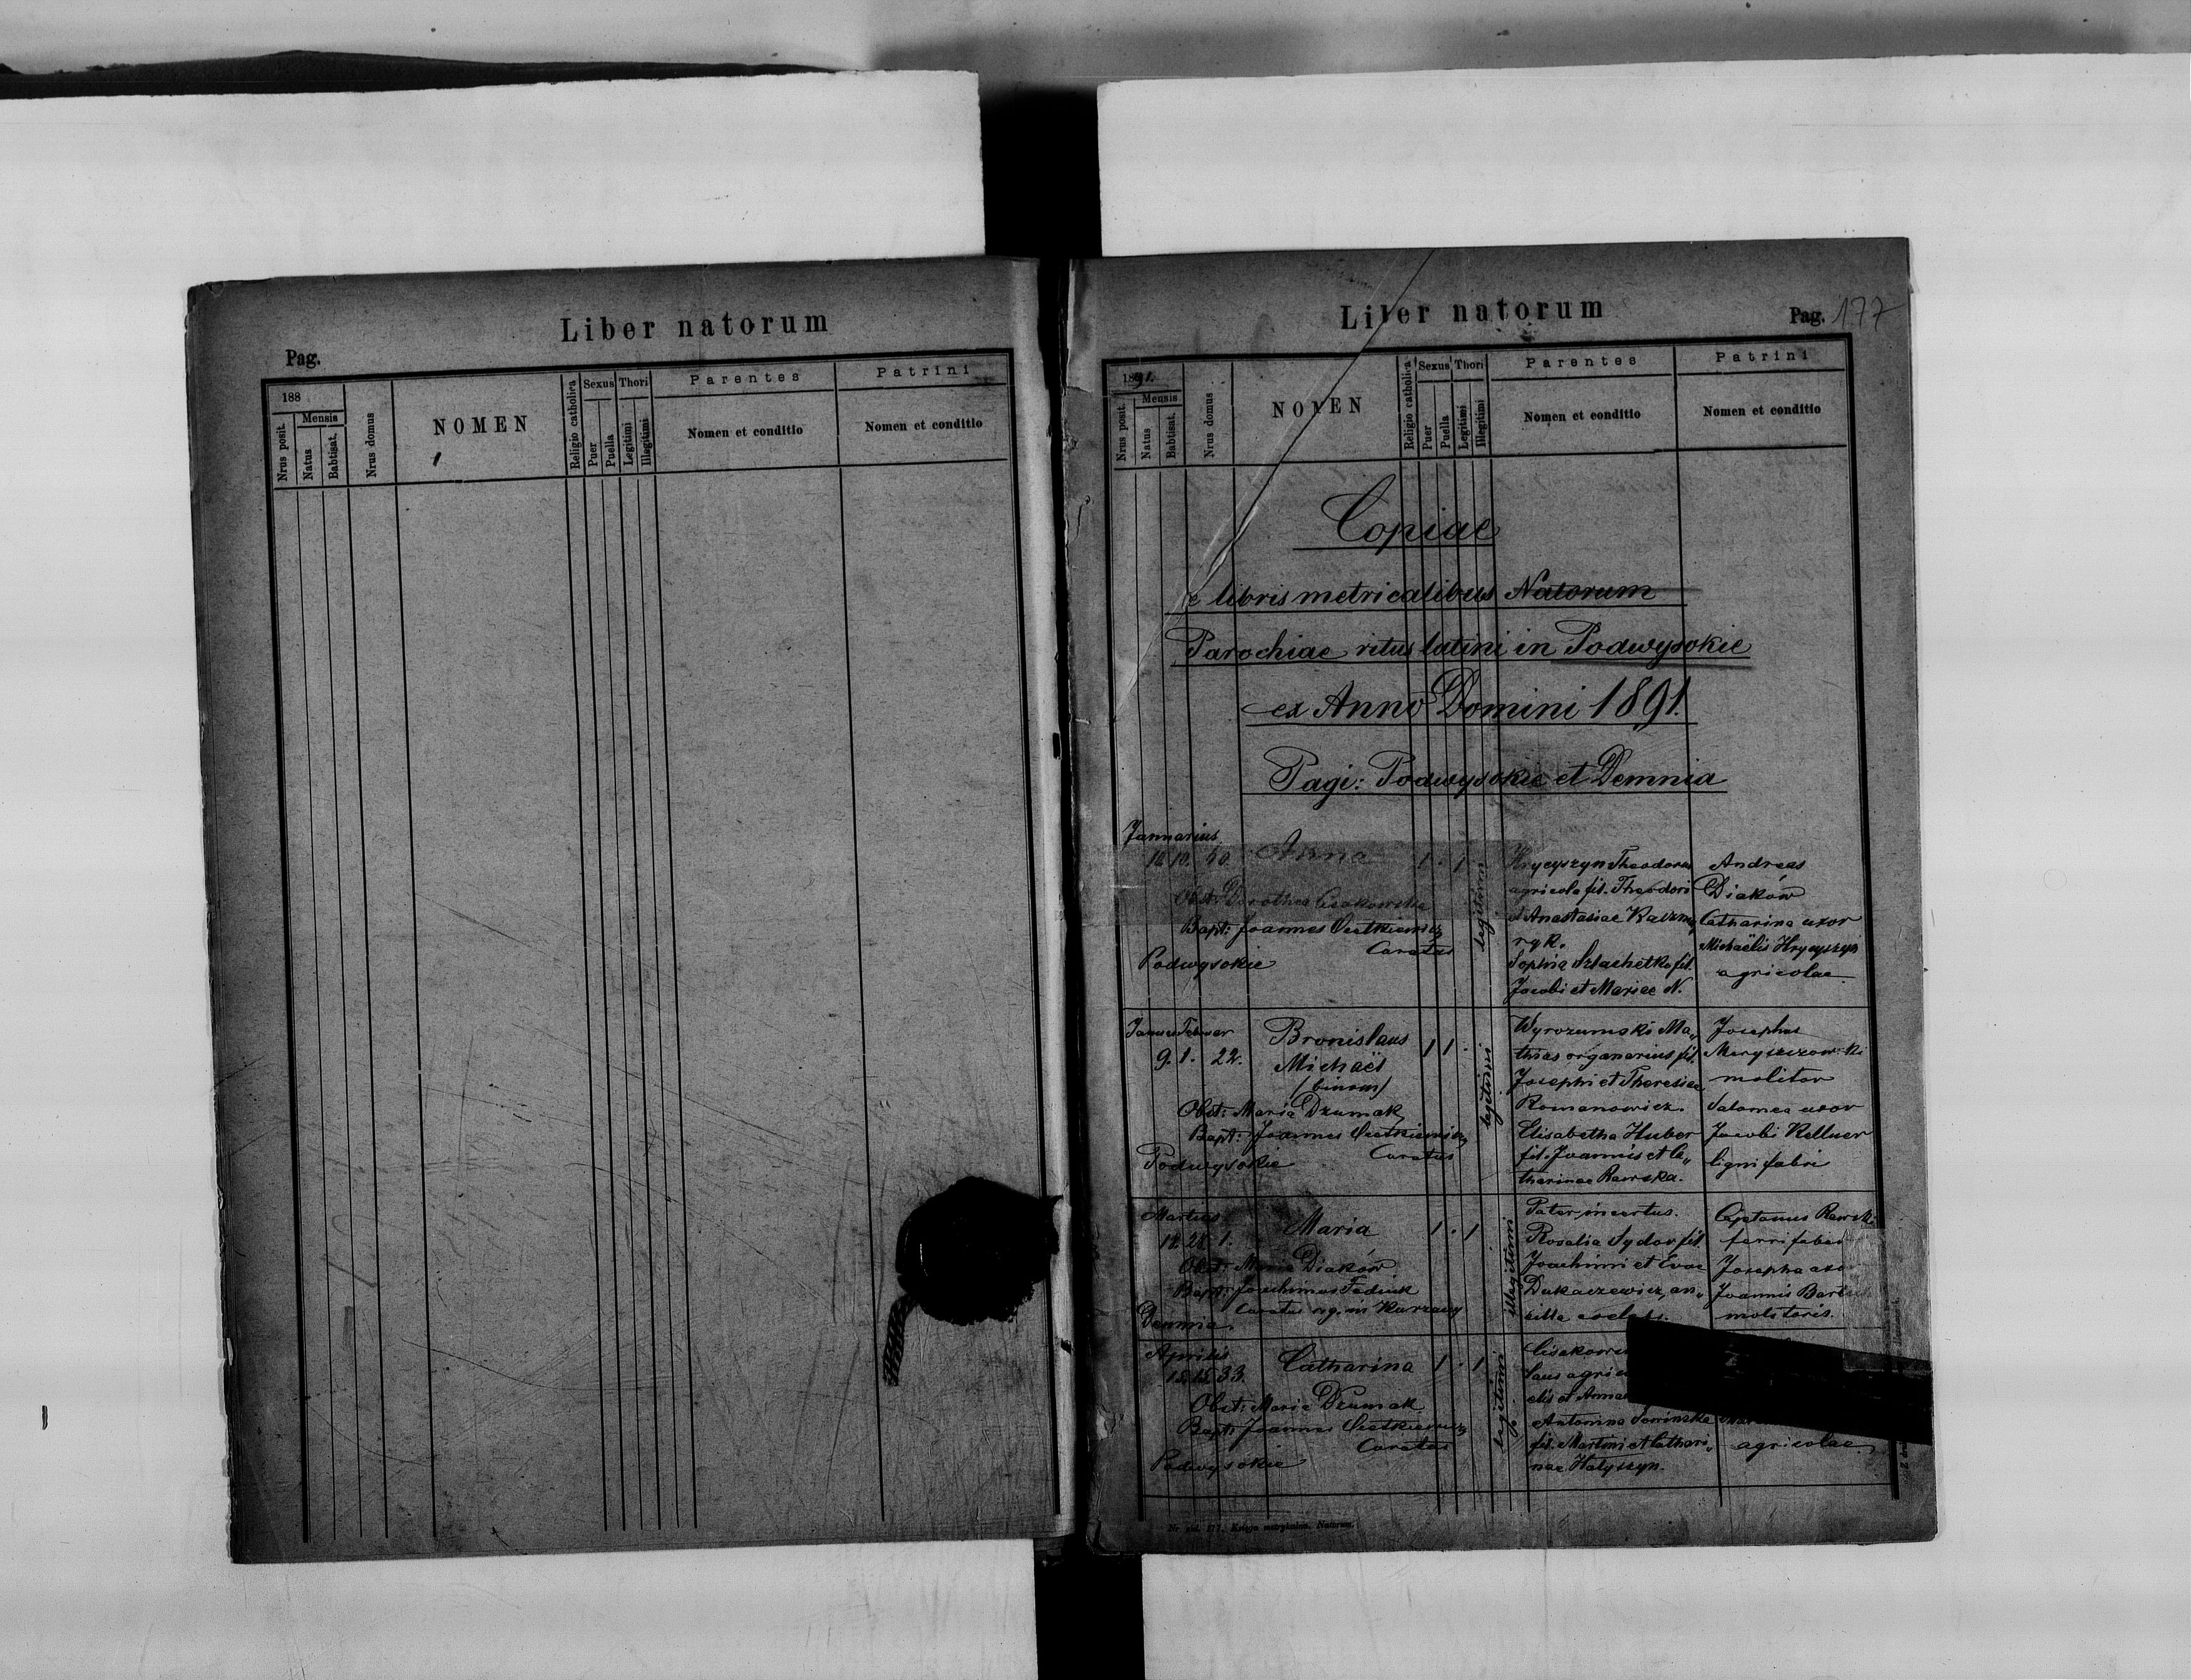 Liber natorum
Pag.
188
Mensis
Nrus posit.
Natus
Babtisat.
Nrus domus
NOMEN
Religio catholica
Sexus
Puer
Puella
Thori
Legitimi
Illegitimi
Parentes
Nomen et conditio
Patrini
Nomen et conditio
Liber natorum
Pag. 177
1891.
Mensis
Nrus posit.
Natus
Babtisat.
Nrus domus
NOMEN
Religio catholica
Sexus
Puer
Puella
Thori
Legitimi
Illegitimi
Parentes
Nomen et conditio
Patrini
Nomen et conditio
Copiae
e libris metricalibus Natorum
Parochiae ritus latini in Podwysokie
ex Anno Domini 1891.
Pagi: Podwysokie et Demnia
Januarius
10 10. 50. Anna 1 . 1
Obst: Dorothea Cisakowska
Bapt: Joannes
Curatus
Podwysokie
legitimi
Hrycyszyn Theodorus
agricola fil. Theodori
et Anastasiae Kaczma
ryk.
Sophia Szlachetko fil.
Jacobi et Mariae N.
Andreas
Diaków
Catharina uxor
Michaëlis Hrycyszyn
agricolae
Januar Februar
9. 1. 22. Bronislaus 1 1 .
Michaël
(binom)
Obst: Maria Dzumak
Bapt: Joannes
Curatus
Podwysokie
legitimi
Wyrozumski Ma„
thias organarius fil.
Josephi et Theresiae
Romanowicz.
Elisabetha Huber
fil. Joannis et Ca„
tharinae Rawska.
Josephus
molitor
Salomea uxor
Jacobi Kellner
ligni fabri
Martius
12. 28. 1. Maria 1 . 1
Obst: Maria Diaków
Bapt: Joachimus Fediuk
Curatus rg. in
Demnia.
illegitimi
Pater incertus.
Rosalia Sydor fil.
Joachimi et Evae
Dukaczewicz, an„
cilla
Cajetanus Rawski
ferri faber
Josepha
Joannis
molitoris.
Aprilis
12. 12. 33. Catharina 1 . 1
Obst: Maria Dzumak
Bapt: Joannes
Curatus
Podwysokie
legitimi
laus
elis et Annae
Antonina Sowinska
fil. Martini et Cathari„
nae Halyszyn.
agricolae.